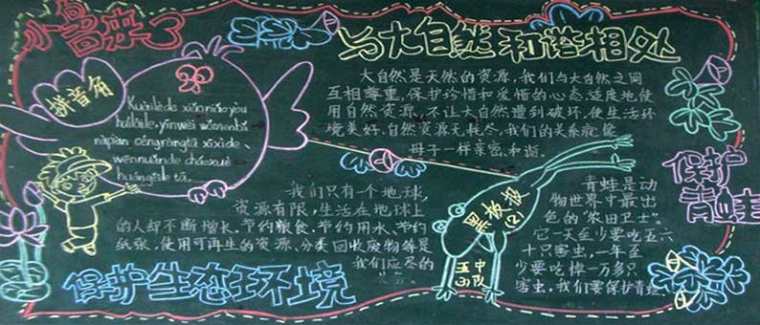 小鸟来了
与大自然和谐相处
拼音角
Kuàilède xiǎoniǎo yòu
huílaile, yīnwèi wǒmen bǎ
nàpiàn céngràngtā xǐxide,
wēnnuǎnde cháoxué
huángjǐle tā.
大自然是天然的资源,我们与大自然之间
互相尊重,保护珍惜和爱惜的心态适度地使
用自然资源,不让大自然遭到破坏,使生活环
境美好,自然资源无耗尽,我们的关系就像
母子一样亲密、和谐。
保护
青蛙
我们只有一个地球,
资源有限,生活在地球上
的人却不断增长。节约粮食、节约用水、节约
纸张、使用可再生的资源、分类回收废物等是
我们应尽的
保护生态环境
黑板报
(2)
五中
山队
青蛙是动
物世界中最出
色的“农田卫士”。
它一天至少要吃五六
十只害虫,一年至
少要吃掉一万多只
害虫,我们要保护青蛙